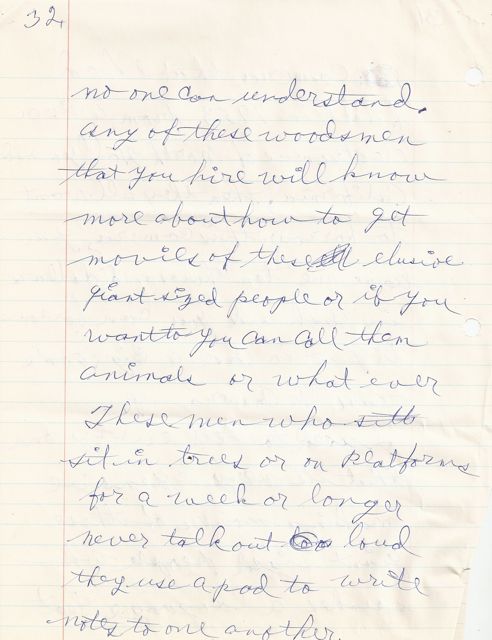 32
no one can understand.
any of these woodsmen
that you hire will know
more about how to get
movies of these elusive
giant sized people or if you
want to you can call them
animals or what ever
These men who sitt
sit in trees or on platforms
for a week or longer
never talk out too loud
they use a pad to write
notes to one another.